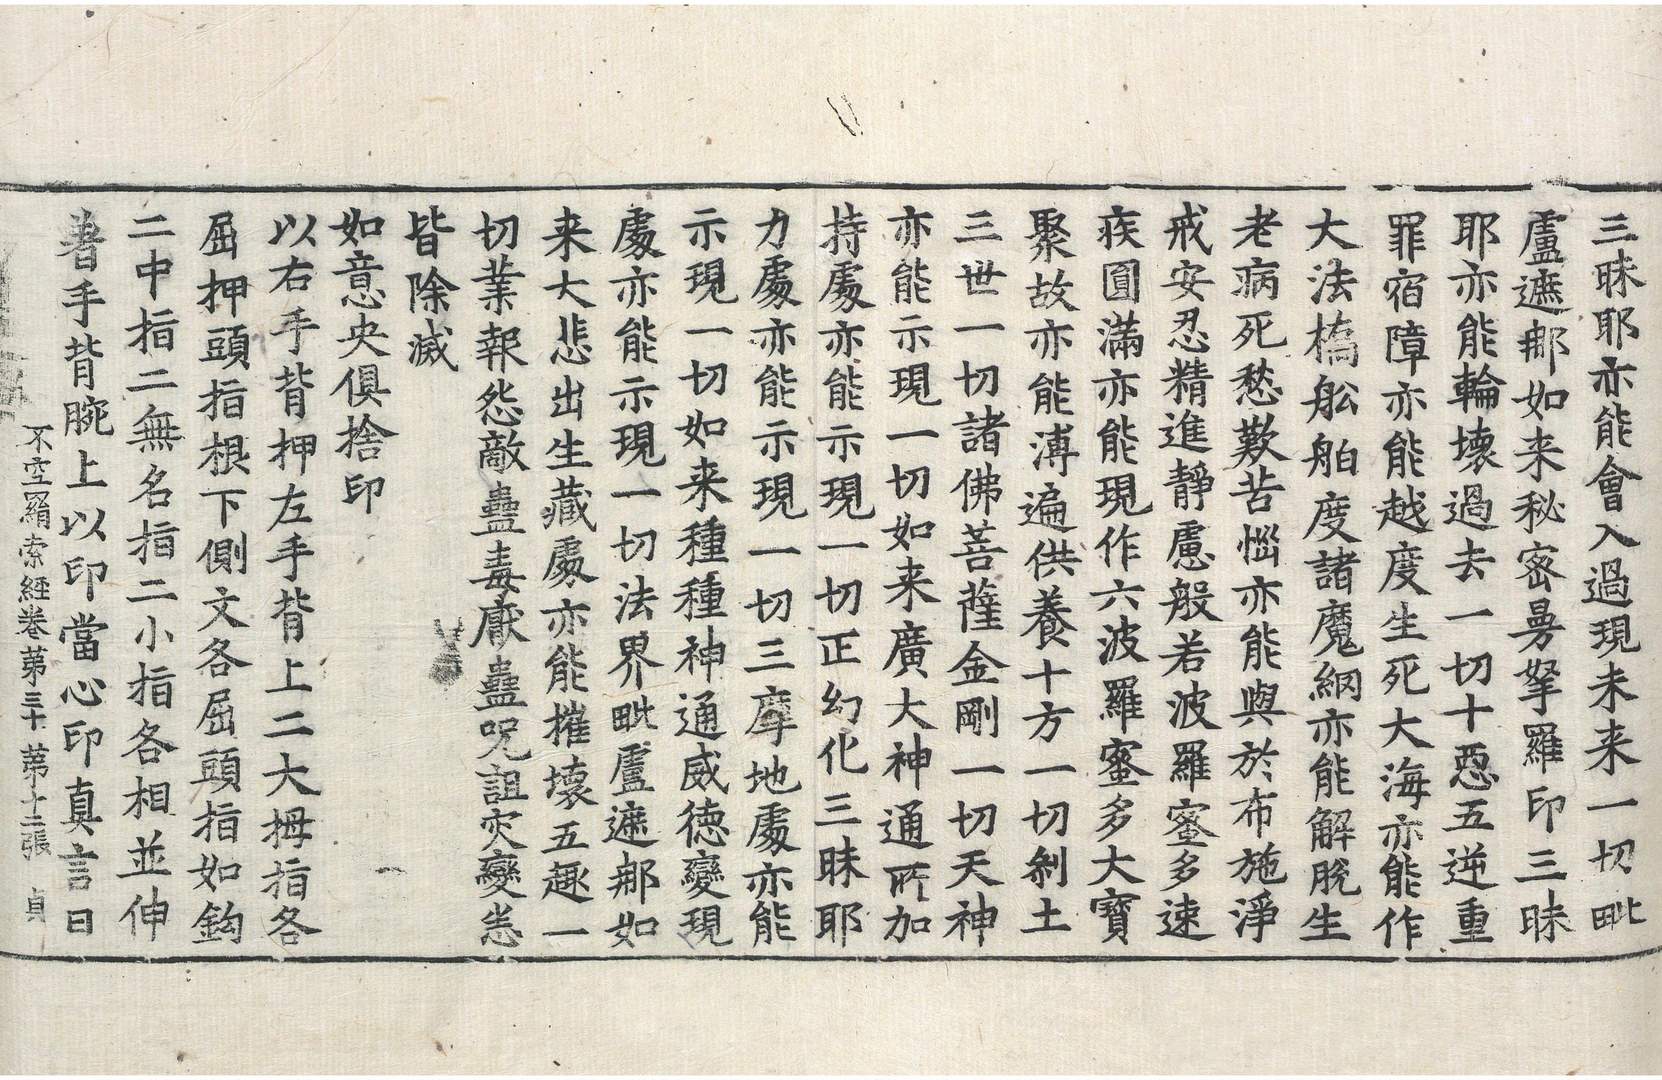 三昧耶亦能會入過現未来一切毗
盧遮郍如来秘密曼拏羅印三昧
耶亦能輪壞過去一切十惡五逆重
罪宿障亦能越度生死大海亦能作
大法橋舩舶度諸魔網亦能解脫生
老病死愁歎苦惱亦能與於布施淨
戒安忍精進靜慮般若波羅蜜多速
疾圓滿亦能現作六波羅蜜多大寶
聚故亦能溥遍供養十方一切剎土
三世一切諸佛菩薩金剛一切天神
亦能示現一切如来廣大神通所加
持處亦能示現一切正幻化三昧耶
力處亦能示現一切三摩地處亦能
示現一切如来種種神通威德變現
處亦能示現一切法界毗盧遮郍如
来大悲出生藏處亦能摧壞五趣一
切業報怨敵蠱毒厭蠱呪詛灾變恙
皆除滅
如意央俱捨印
以右手背押左手背上二大拇指各
屈押頭指根下側文各屈頭指如鉤
二中指二無名指二小指各相並伸
著手背腕上以印當心印真言曰
不空羂索經卷苐三十 苐十二張 貞